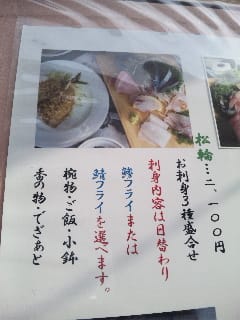 松輪…二、一〇〇円
お刺身3種盛合せ
刺身内容は日替わり
鯵フライまたは
鯖フライを選べます。
椀物・ご飯・小鉢
香の物・でざあと